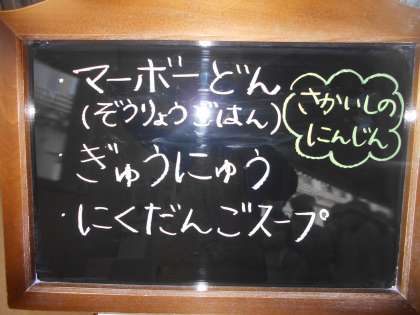 ・マーボーどん
(ぞうりょうごはん)
・ぎゅうにゅう
・にくだんごスープ
さかいしの
にんじん